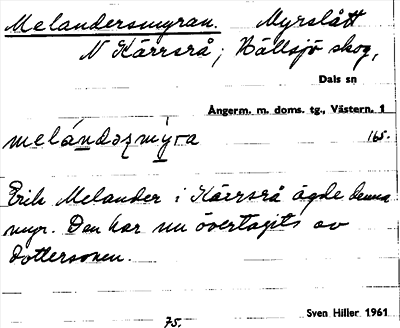 Melandersmyran. Myrslått
N Kärrsrå, Hällsjö skog,
Dals sn
Ångerm. m. doms. tg., Västern. 1
melándaʒmỳra 165.
Erik Melander i Kärrsrå ägde denna
myr. Den har nu övertagits av
dottersonen.
Sven Hiller 1961
75.